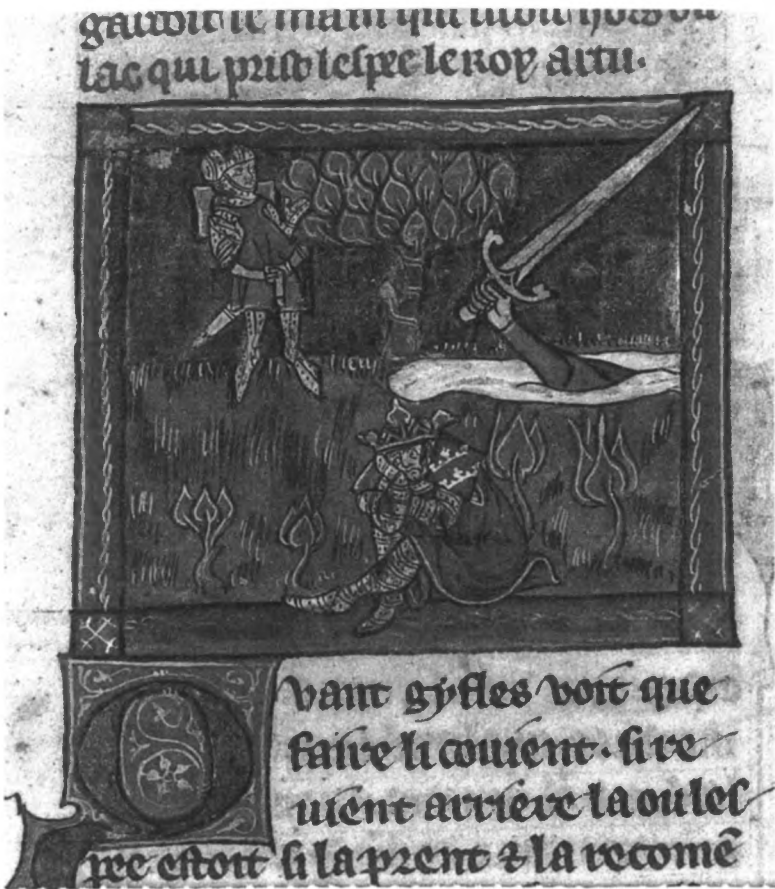 gardoit le main qui issoit hors du
lac qui prist lespee le roy artu.
Qvant gyfles voit que
faire li couient. si re
uient arriere la ou les
pee estoit si la prent ⁊ la recomē